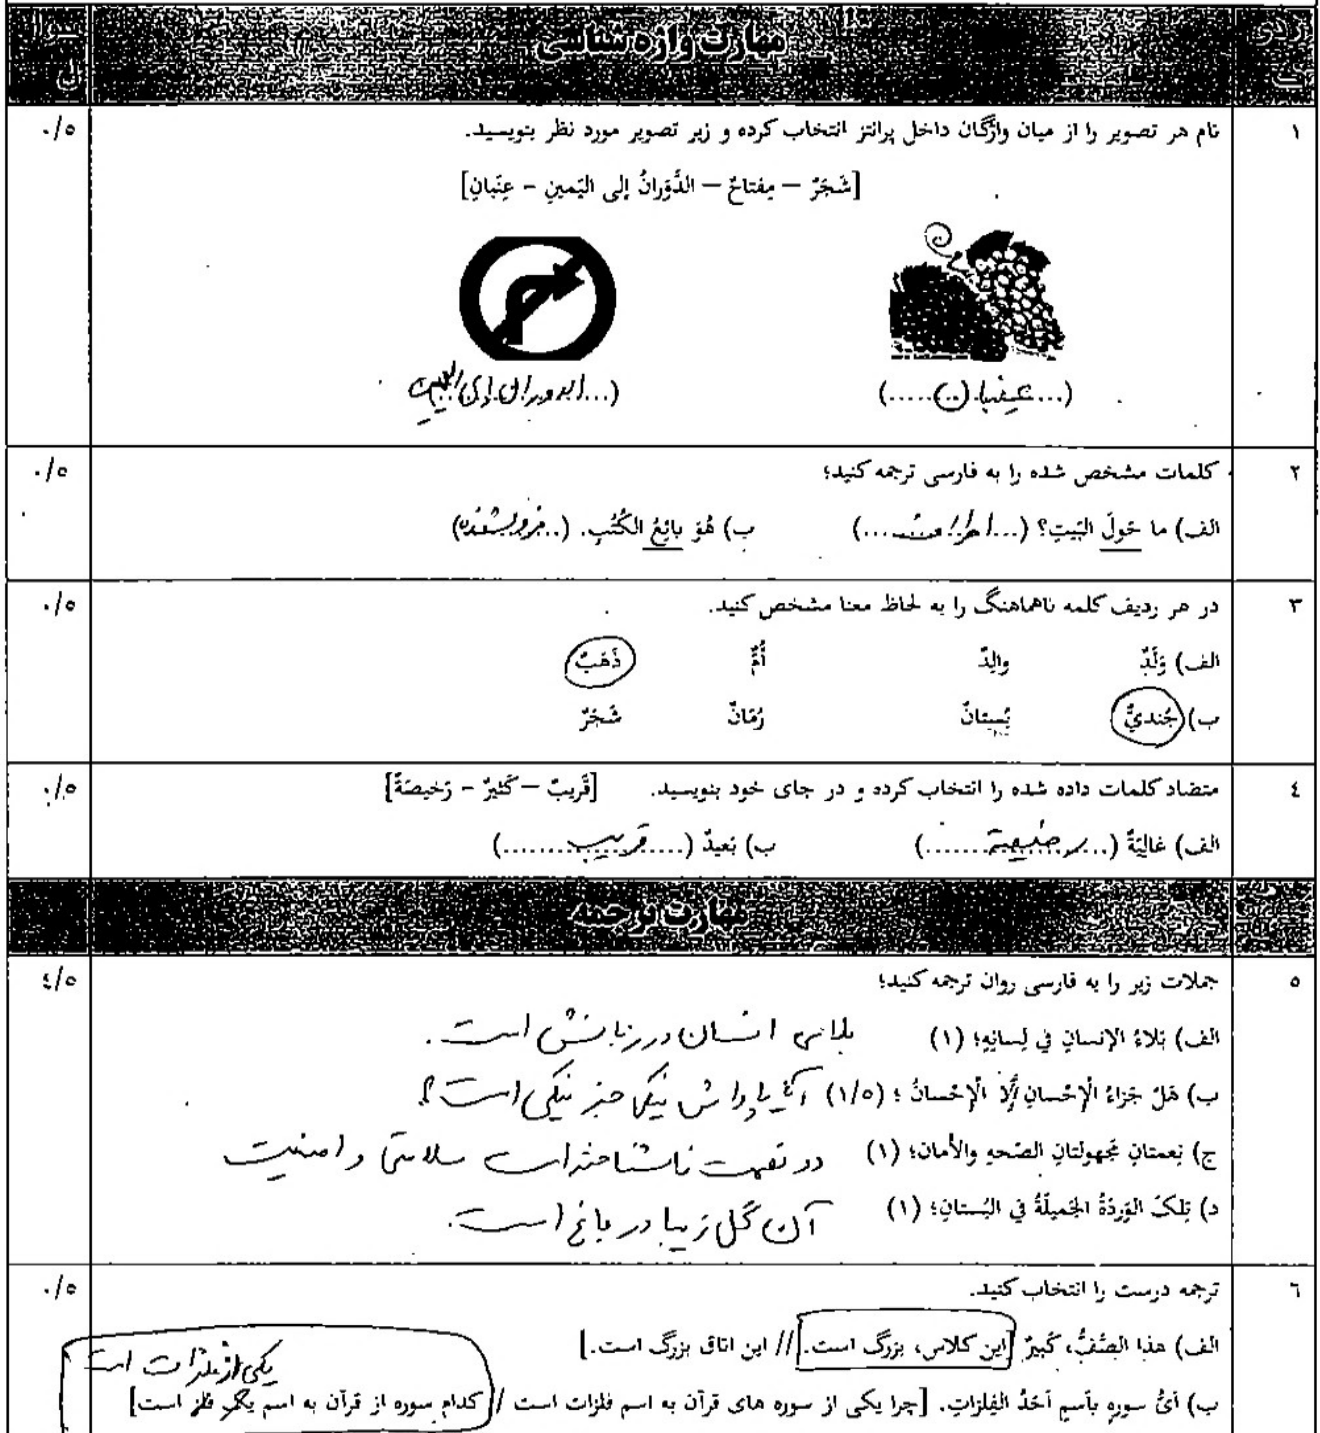 ردیف مهارت واژه شناسی
١ نام هر تصویر را از میان واژگان داخل پرانتز انتخاب کرده و زیر تصویر مورد نظر بنویسید. ٠/٥
[شَجَرٌ – مِفتاحٌ – الدَّوَرانُ إلی الیَمینِ – عِنَبانِ]
(...عِنَبان...) (...الدوران إلی الیمین)
٢ کلمات مشخص شده را به فارسی ترجمه کنید؛ ٠/٥
الف) ما حَولَ البَیتِ؟ (...اطراف...) ب) هُوَ بائِعُ الکُتُبِ. (..فروشنده)
٣ در هر ردیف کلمه ناهماهنگ را به لحاظ معنا مشخص کنید. ٠/٥
الف) وَلَدٌ والِدٌ أُمٌّ ذَهَبٌ
ب) جُنديٌّ بُستانٌ رُمّانٌ شَجَرٌ
٤ متضاد کلمات داده شده را انتخاب کرده و در جای خود بنویسید. [قَریبٌ – کَثیرٌ – رَخیصَةٌ] ٠/٥
الف) غالیَةٌ (...رخیصة...) ب) بَعیدٌ (...قریب...)
مهارت ترجمه
٥ جملات زیر را به فارسی روان ترجمه کنید؛ ٤/٥
الف) بَلاءُ الإنسانِ في لِسانِهِ؛ (١) بلای انسان در زبانش است.
ب) هَلْ جَزاءُ الْإِحْسانِ إِلّا الْإِحْسانُ ؛ (١/٥) آیا پاداش نیکی جز نیکی است؟
ج) نِعمتانِ مَجهولَتانِ الصّحهِ والأمان؛ (١) دو نعمت ناشناخته است سلامتی و امنیت
د) تِلکَ الوَردَةُ الجَمیلَةُ في البُستانِ؛ (١) آن گل زیبا در باغ است.
٦ ترجمه درست را انتخاب کنید. ٠/٥
الف) هذا الصَّفُّ، کَبیرٌ [این کلاس، بزرگ است. // این اتاق بزرگ است.]
یکی از فلزات است
ب) أیُّ سورهٍ بِأسمِ أحَدُ الفِلزاتِ. [چرا یکی از سوره های قرآن به اسم فلزات است // کدام سوره از قرآن به اسم فلز است]